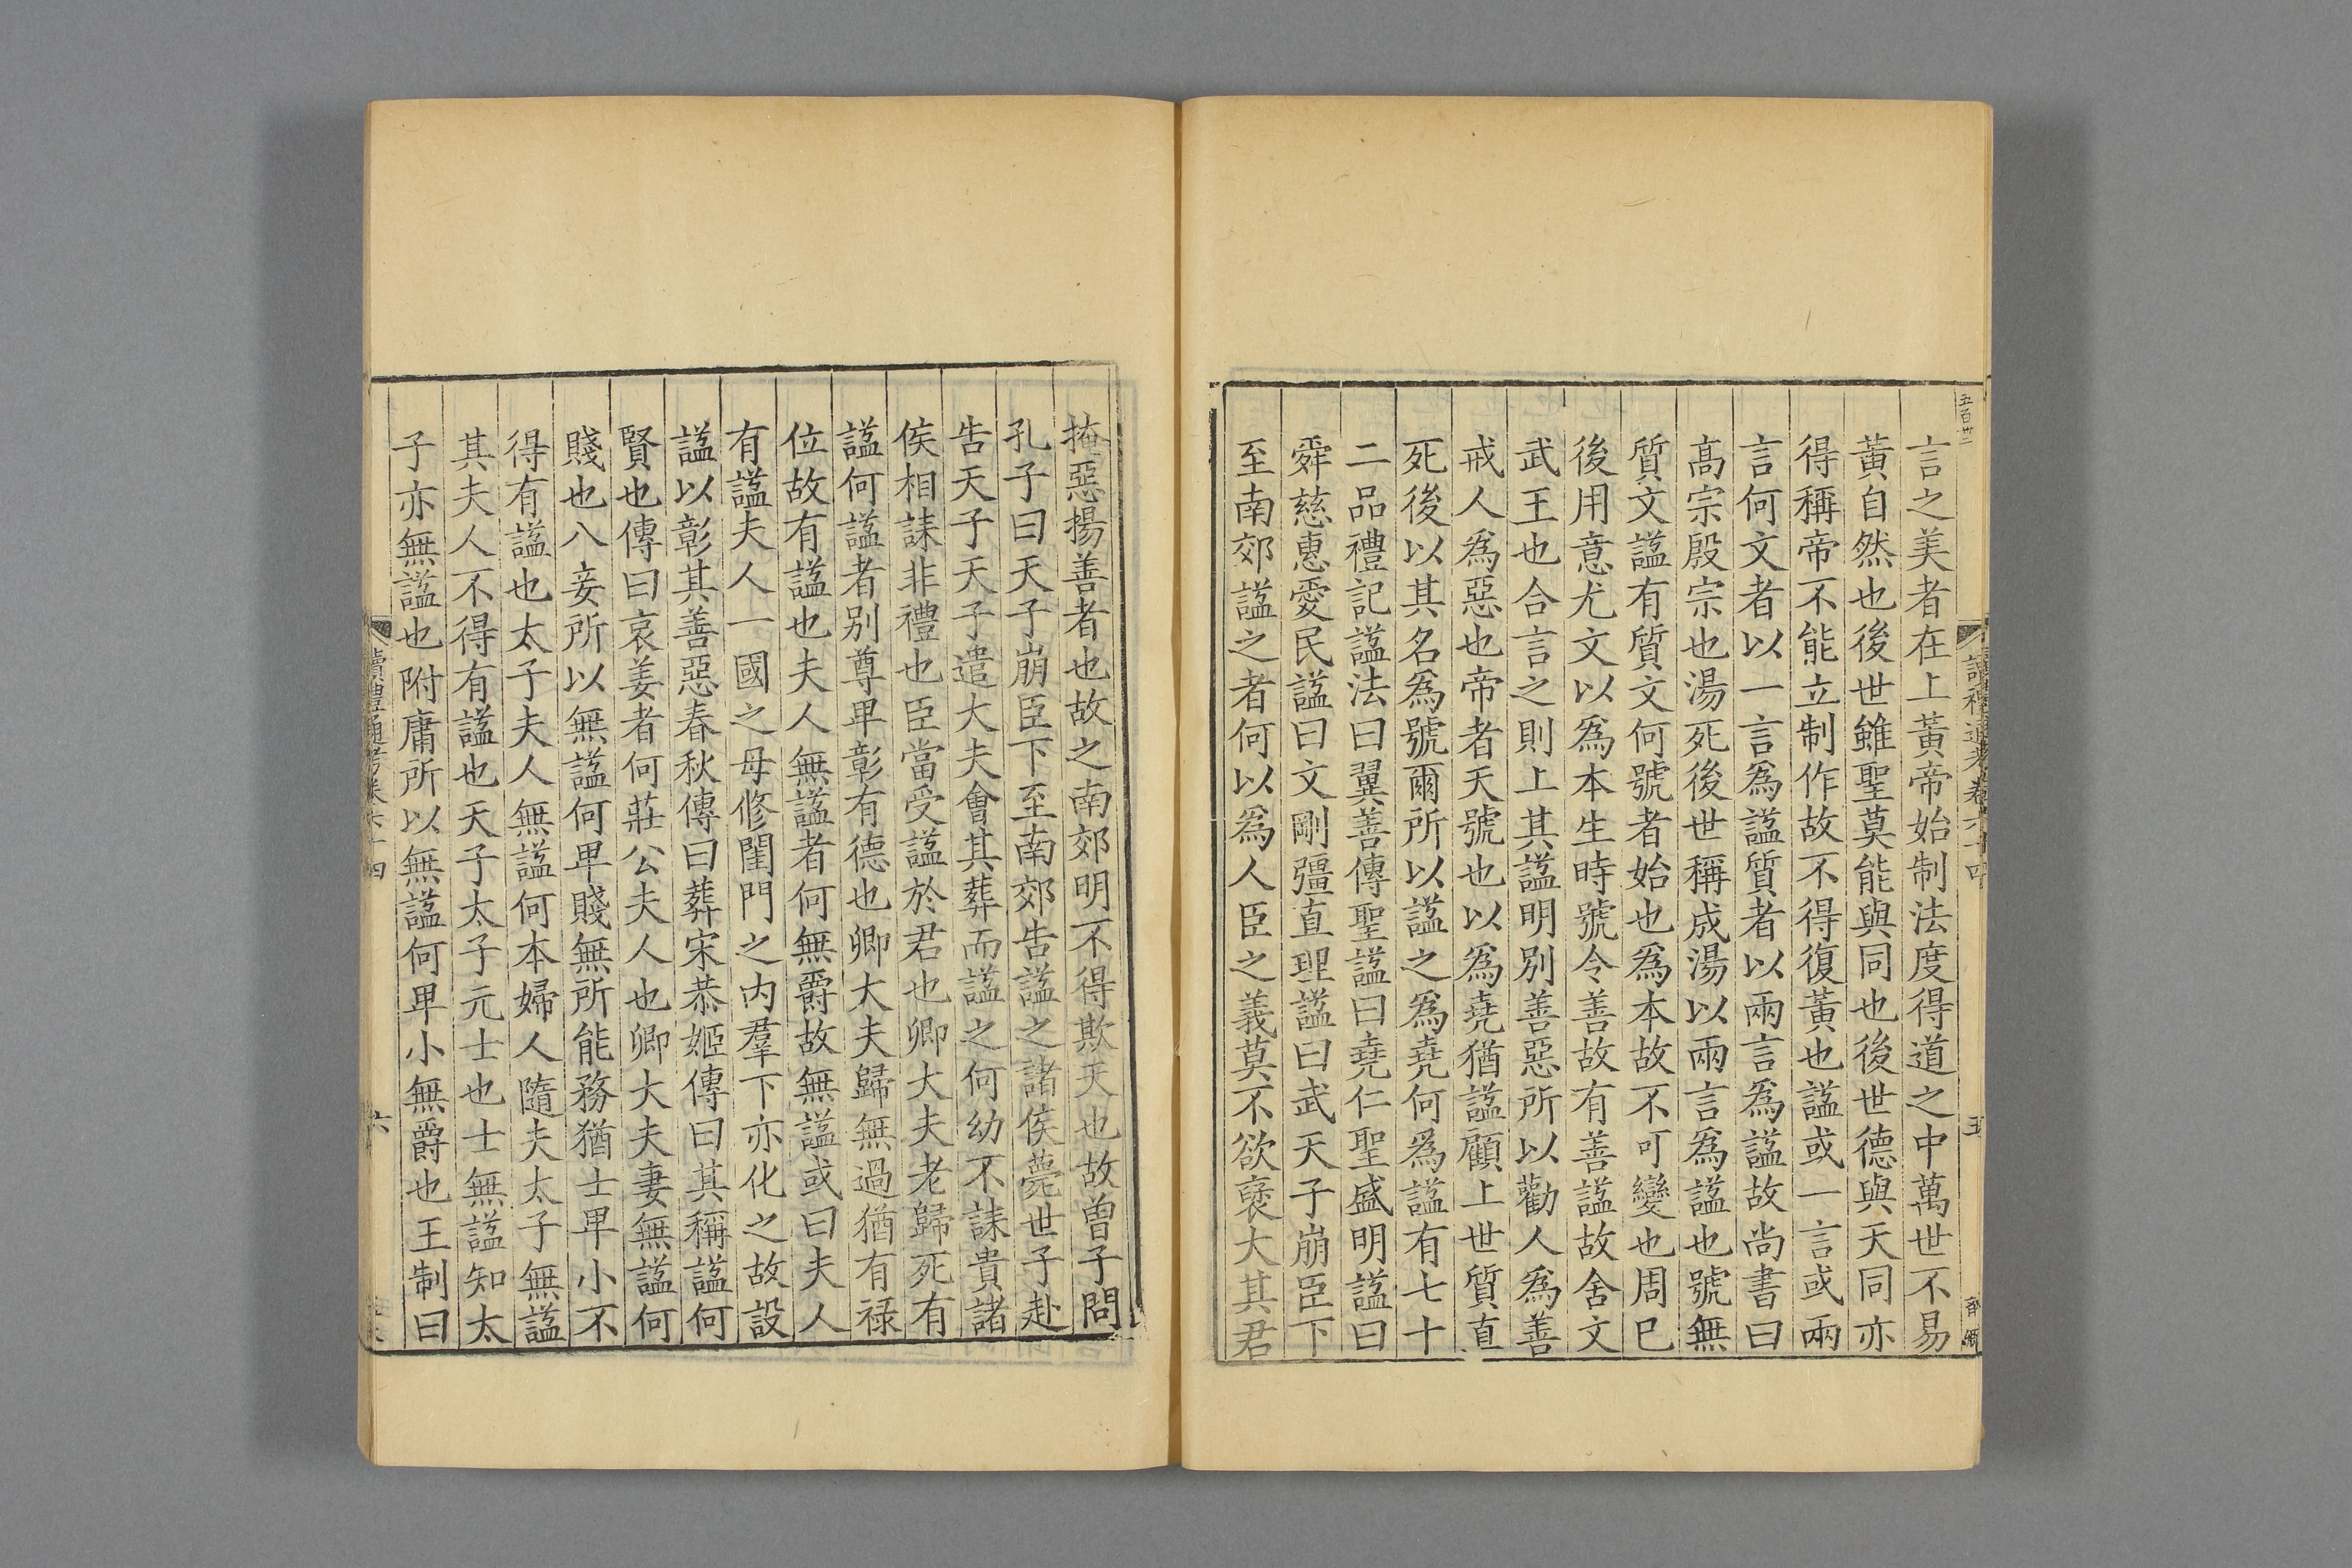 五百卅二
言之美者在上黃帝始制法度得道之中萬世不易
黃自然也後世雖聖莫能與同也後世德與天同亦
得稱帝不能立制作故不得復黃也諡或一言或兩
言何文者以一言爲諡質者以兩言爲諡故尚書曰
高宗殷宗也湯死後世稱成湯以兩言爲諡也號無
質文諡有質文何號者始也爲本故不可變也周已
後用意尤文以爲本生時號令善故有善諡故舍文
武王也合言之則上其諡明別善惡所以勸人爲善
戒人爲惡也帝者天號也以爲堯猶諡顧上世質直
死後以其名爲號爾所以諡之爲堯何爲諡有七十
二品禮記諡法曰翼善傳聖諡曰堯仁聖盛明諡曰
舜慈惠愛民諡曰文剛彊直理諡曰武天子崩臣下
至南郊諡之者何以爲人臣之義莫不欲襃大其君
掩惡揚善者也故之南郊明不得欺天也故曾子問
孔子曰天子崩臣下至南郊告諡之諸侯薨世子赴
告天子天子遣大夫會其葬而諡之何幼不誄貴諸
侯相誄非禮也臣當受諡於君也卿大夫老歸死有
諡何諡者别尊卑彰有德也卿大夫歸無過猶有祿
位故有諡也夫人無諡者何無爵故無諡或曰夫人
有諡夫人一國之母修閨門之内羣下亦化之故設
諡以彰其善惡春秋傳曰葬宋恭姬傳曰其稱諡何
賢也傳曰哀姜者何莊公夫人也卿大夫妻無諡何
賤也八妾所以無諡何卑賤無所能務猶士卑小不
得有諡也太子夫人無諡何本婦人隨夫太子無諡
其夫人不得有諡也天子太子元士也士無諡知太
子亦無諡也附庸所以無諡何卑小無爵也王制曰
讀禮通考卷六十四
六